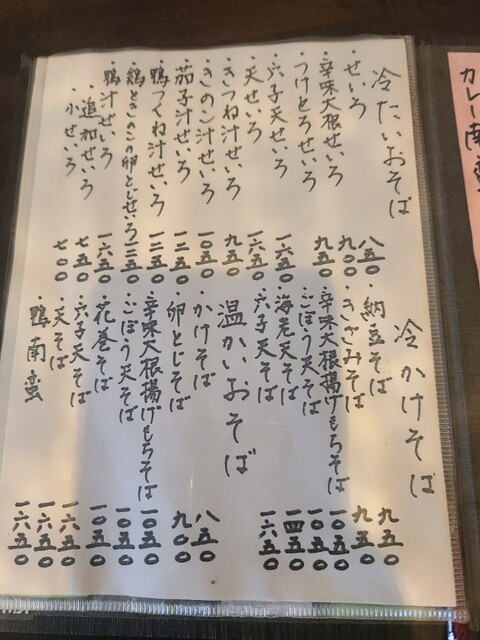 カレー南蛮
冷たいおそば
・せいろ 八五〇
・辛味大根せいろ 九〇〇
・つけとろせいろ 九五〇
・穴子天せいろ 一六五〇
・天せいろ 一六五〇
・きつね汁せいろ 九五〇
・きのこ汁せいろ 一〇五〇
・茄子汁せいろ 一二五〇
・鴨つくね汁せいろ 一二五〇
・鶏ときのこの卵とじせいろ 一二五〇
・鴨汁せいろ 一六五〇
・追加せいろ 七五〇
・小せいろ 七〇〇
冷かけそば
・納豆そば 九五〇
・きざみそば 九五〇
・辛味大根揚げもちそば 一〇五〇
・ごぼう天そば 一〇五〇
・海老天そば 一四五〇
・穴子天そば 一六五〇
温かいおそば
・かけそば 八五〇
・卵とじそば 九〇〇
・辛味大根揚げもちそば 一〇五〇
・ごぼう天そば 一〇五〇
・花巻そば 一〇五〇
・穴子天そば 一六五〇
・天そば 一六五〇
・鴨南蛮 一六五〇